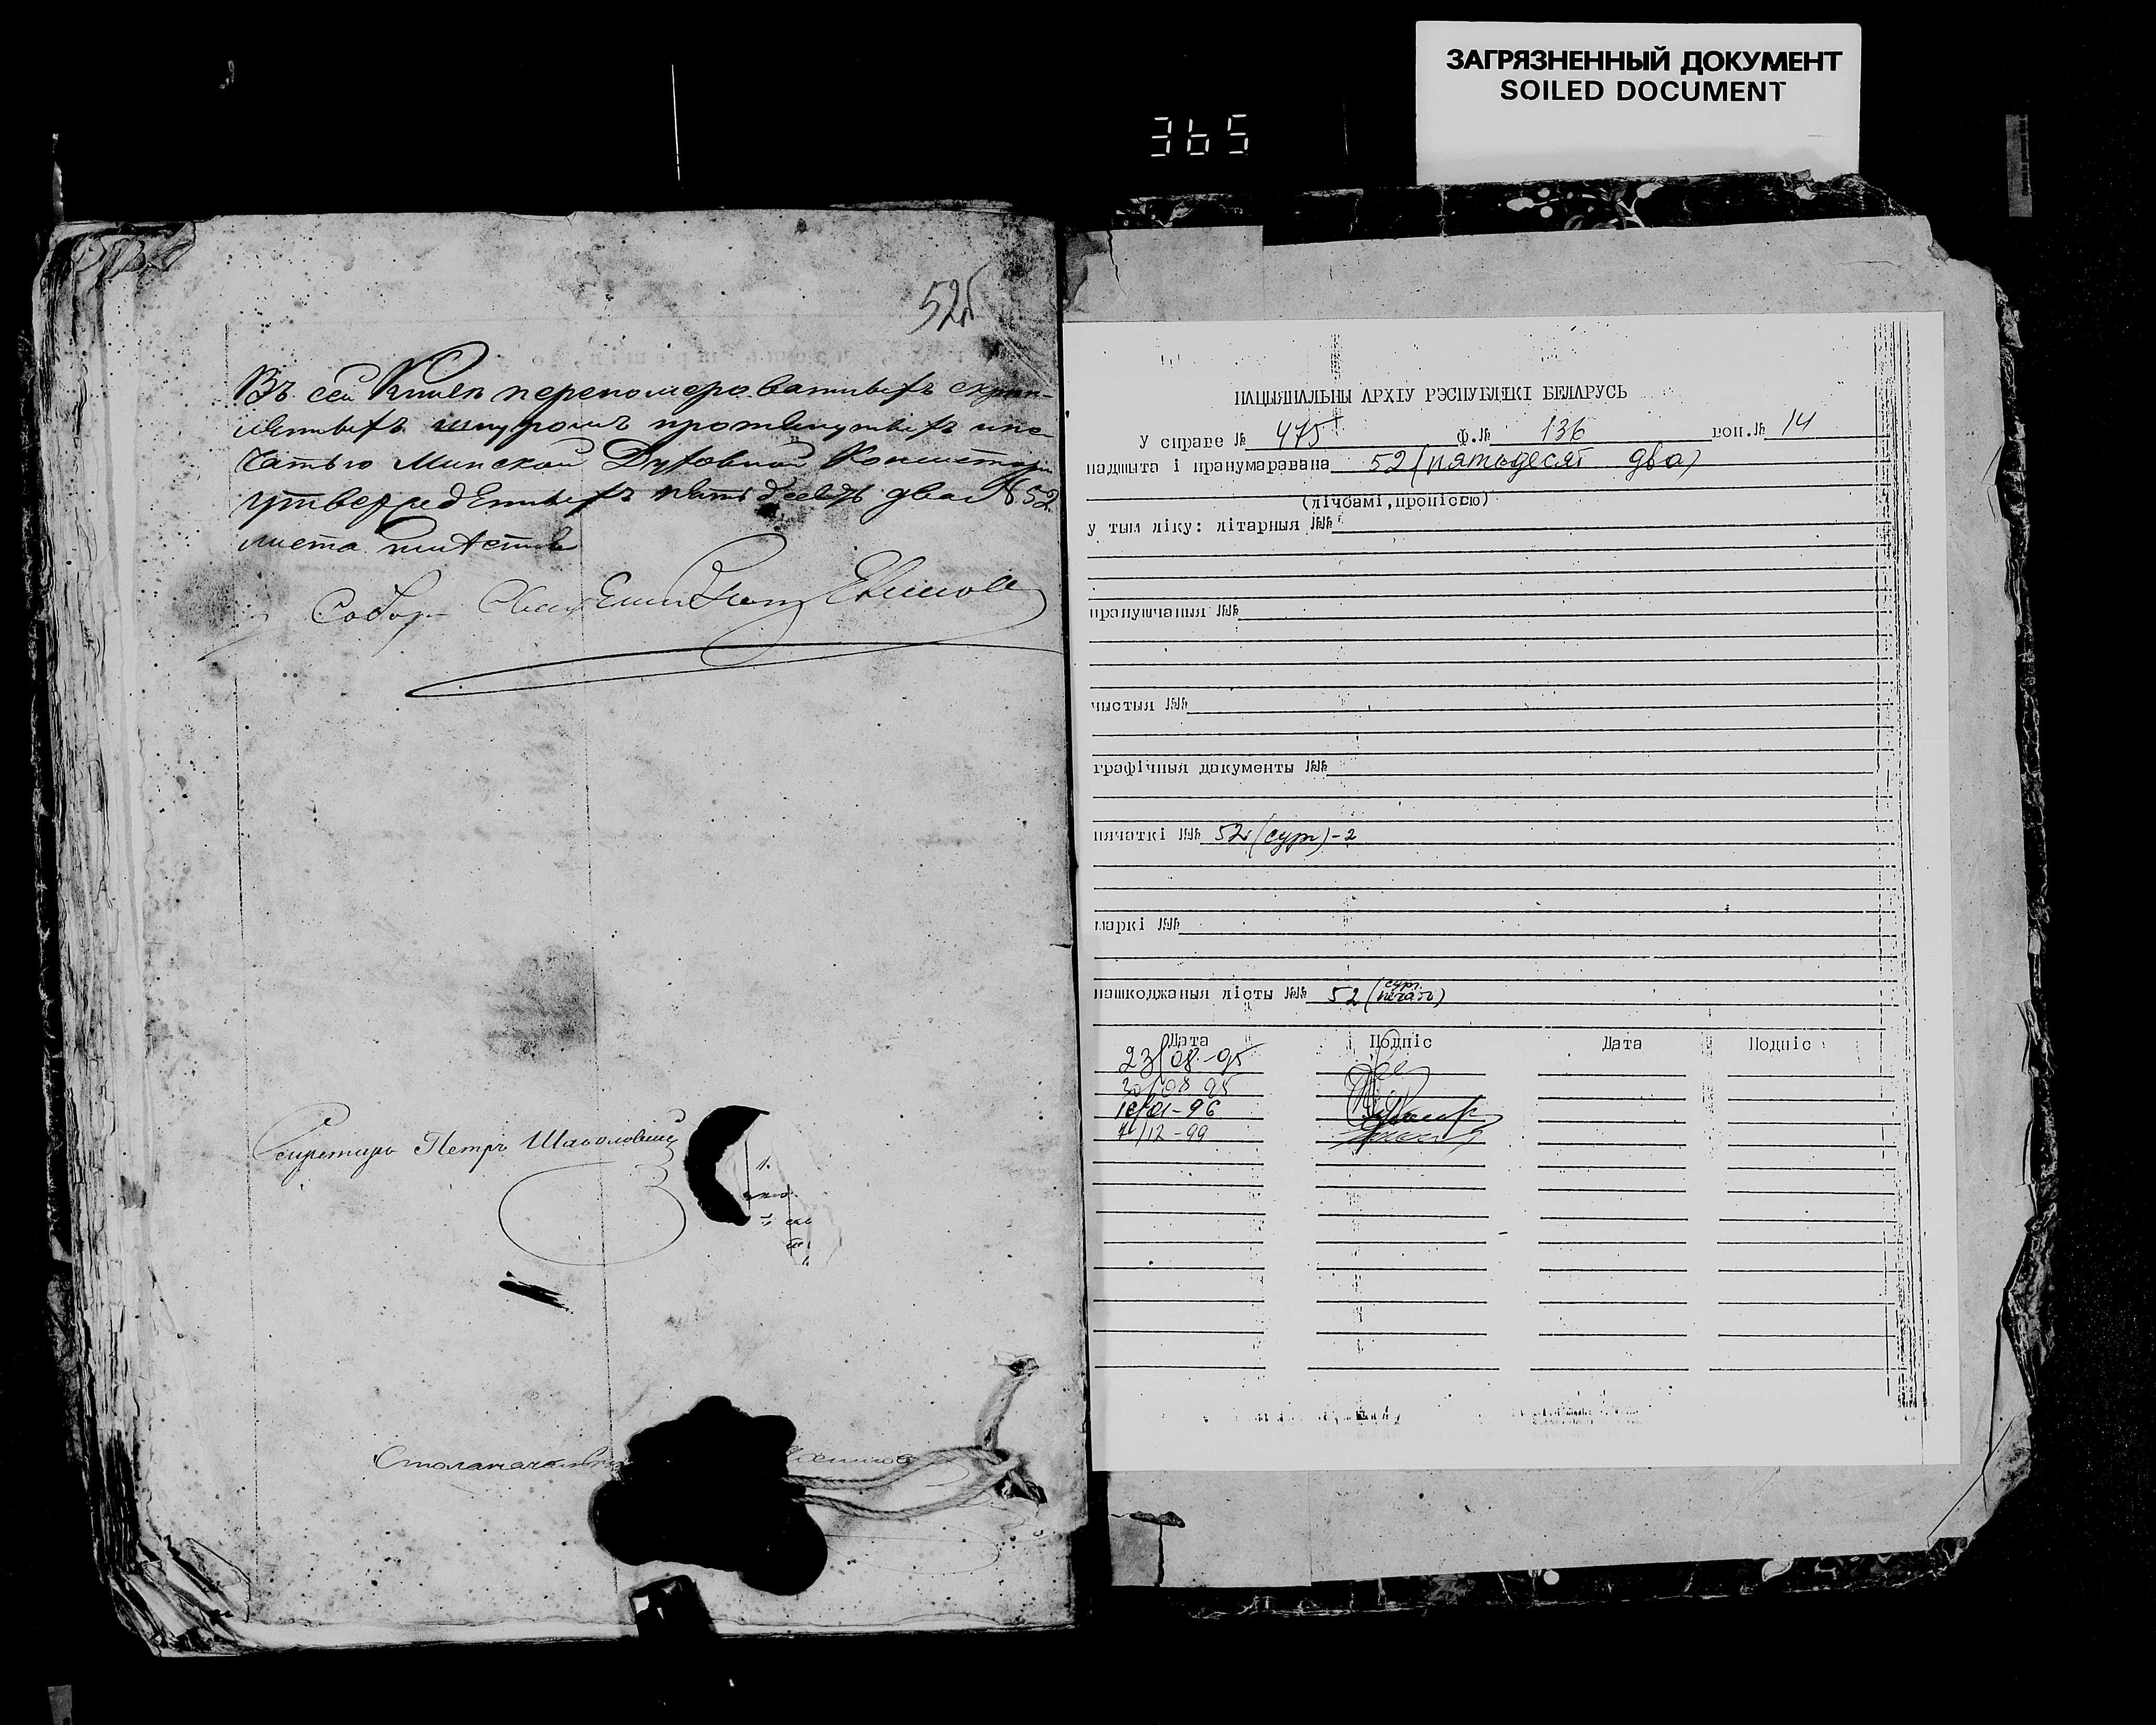 ЗАГРЯЗНЕННЫЙ ДОКУМЕНТ
SOILED DOCUMENT
365
52
Въ сей Книгѣ перенумерованныхъ скреп-
ленныхъ шнуромъ протянутыхъ и пе-
чатью Минской Духовной Консисторіи
утвержденныхъ пятьдесятъ два № 52
листа
Секретарь Петръ
Столоначальникъ
НАЦЫЯНАЛЬНЫ АРХІУ РЭСПУБЛІКІ БЕЛАРУСЬ
У справе № 475 Ф.№ 136 воп.№ 14
падшыта і пранумаравана 52 (пятьдесят два)
(лічбамі, пропіссю)
у тым ліку: літарныя №№
прапушчаныя №№
чыстыя №№
графічныя дакументы №№
пячаткі №№ 52 (сург) - 2
маркі №№
пашкоджаныя лісты №№ 52 (сург. печать)
Дата Подпіс Дата Подпіс
23/08-95
30/08 95
16/01-96
7/12-99